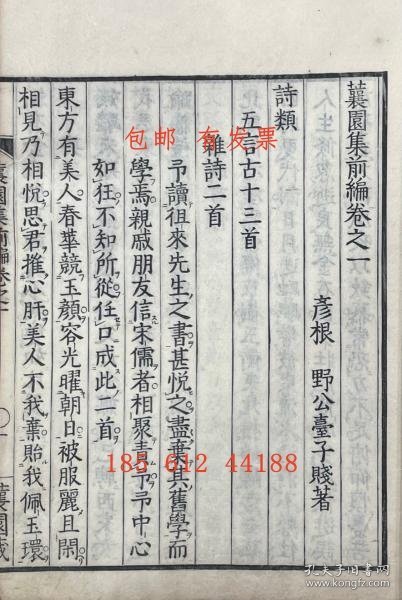 蘐園集前編卷之一
彦根 野公臺子賤著
詩類
五言古十三首
雜詩二首
予讀祖來先生之書甚悦之盡棄其舊學而
學焉親戚朋友信宋儒者相聚責予予中心
如狂不知所從任口成此二首
東方有美人春華競玉顔容光曜朝日被服麗且閑
相見乃相悦思君摧心肝美人不我棄貽我佩玉環
集前編卷之一
包邮 有发票
185 612 44188
孔夫子旧书网
www.kongfz.com